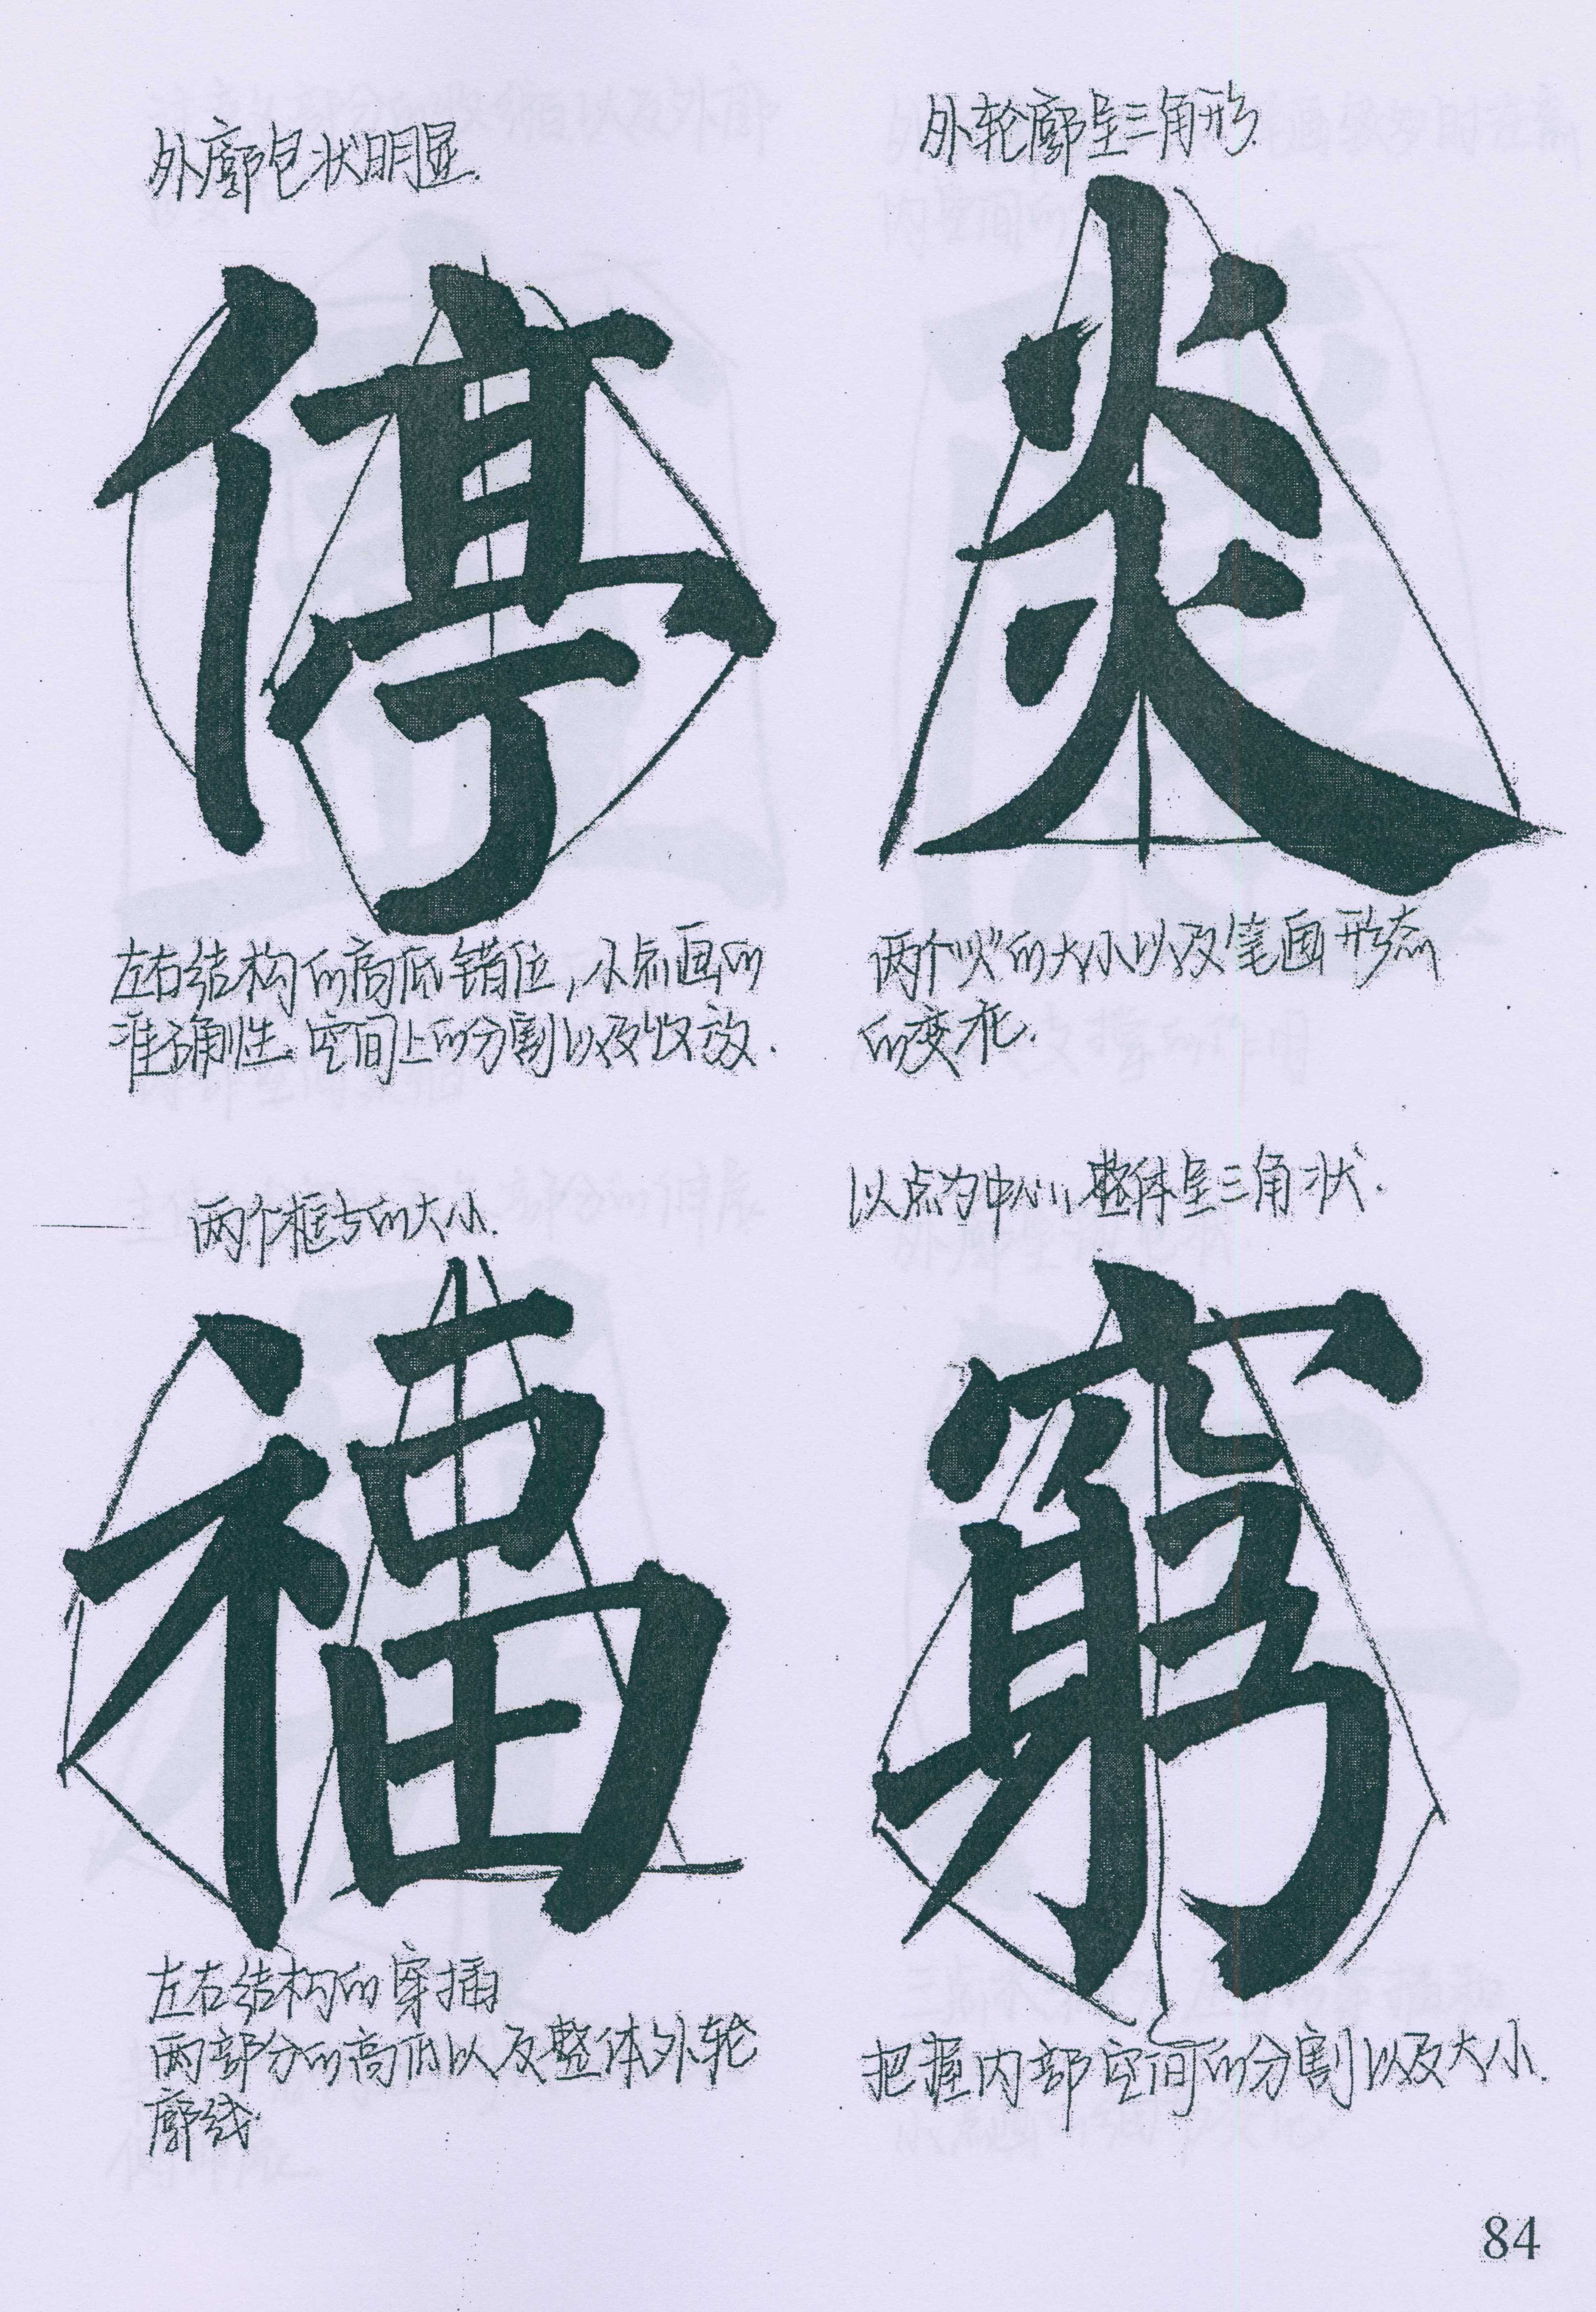 外廓包状明显.
停
左右结构的高低错位,小点画的
准确性.空间上的分割以及收放.
外轮廓呈三角形.
炎
两个“火”的大小以及笔画形态
的变化.
两个框与的大小.
福
左右结构的穿插
两部分的高低以及整体外轮
廓线.
以点为中心,整体呈三角状.
窮
把握内部空间的分割以及大小.
84